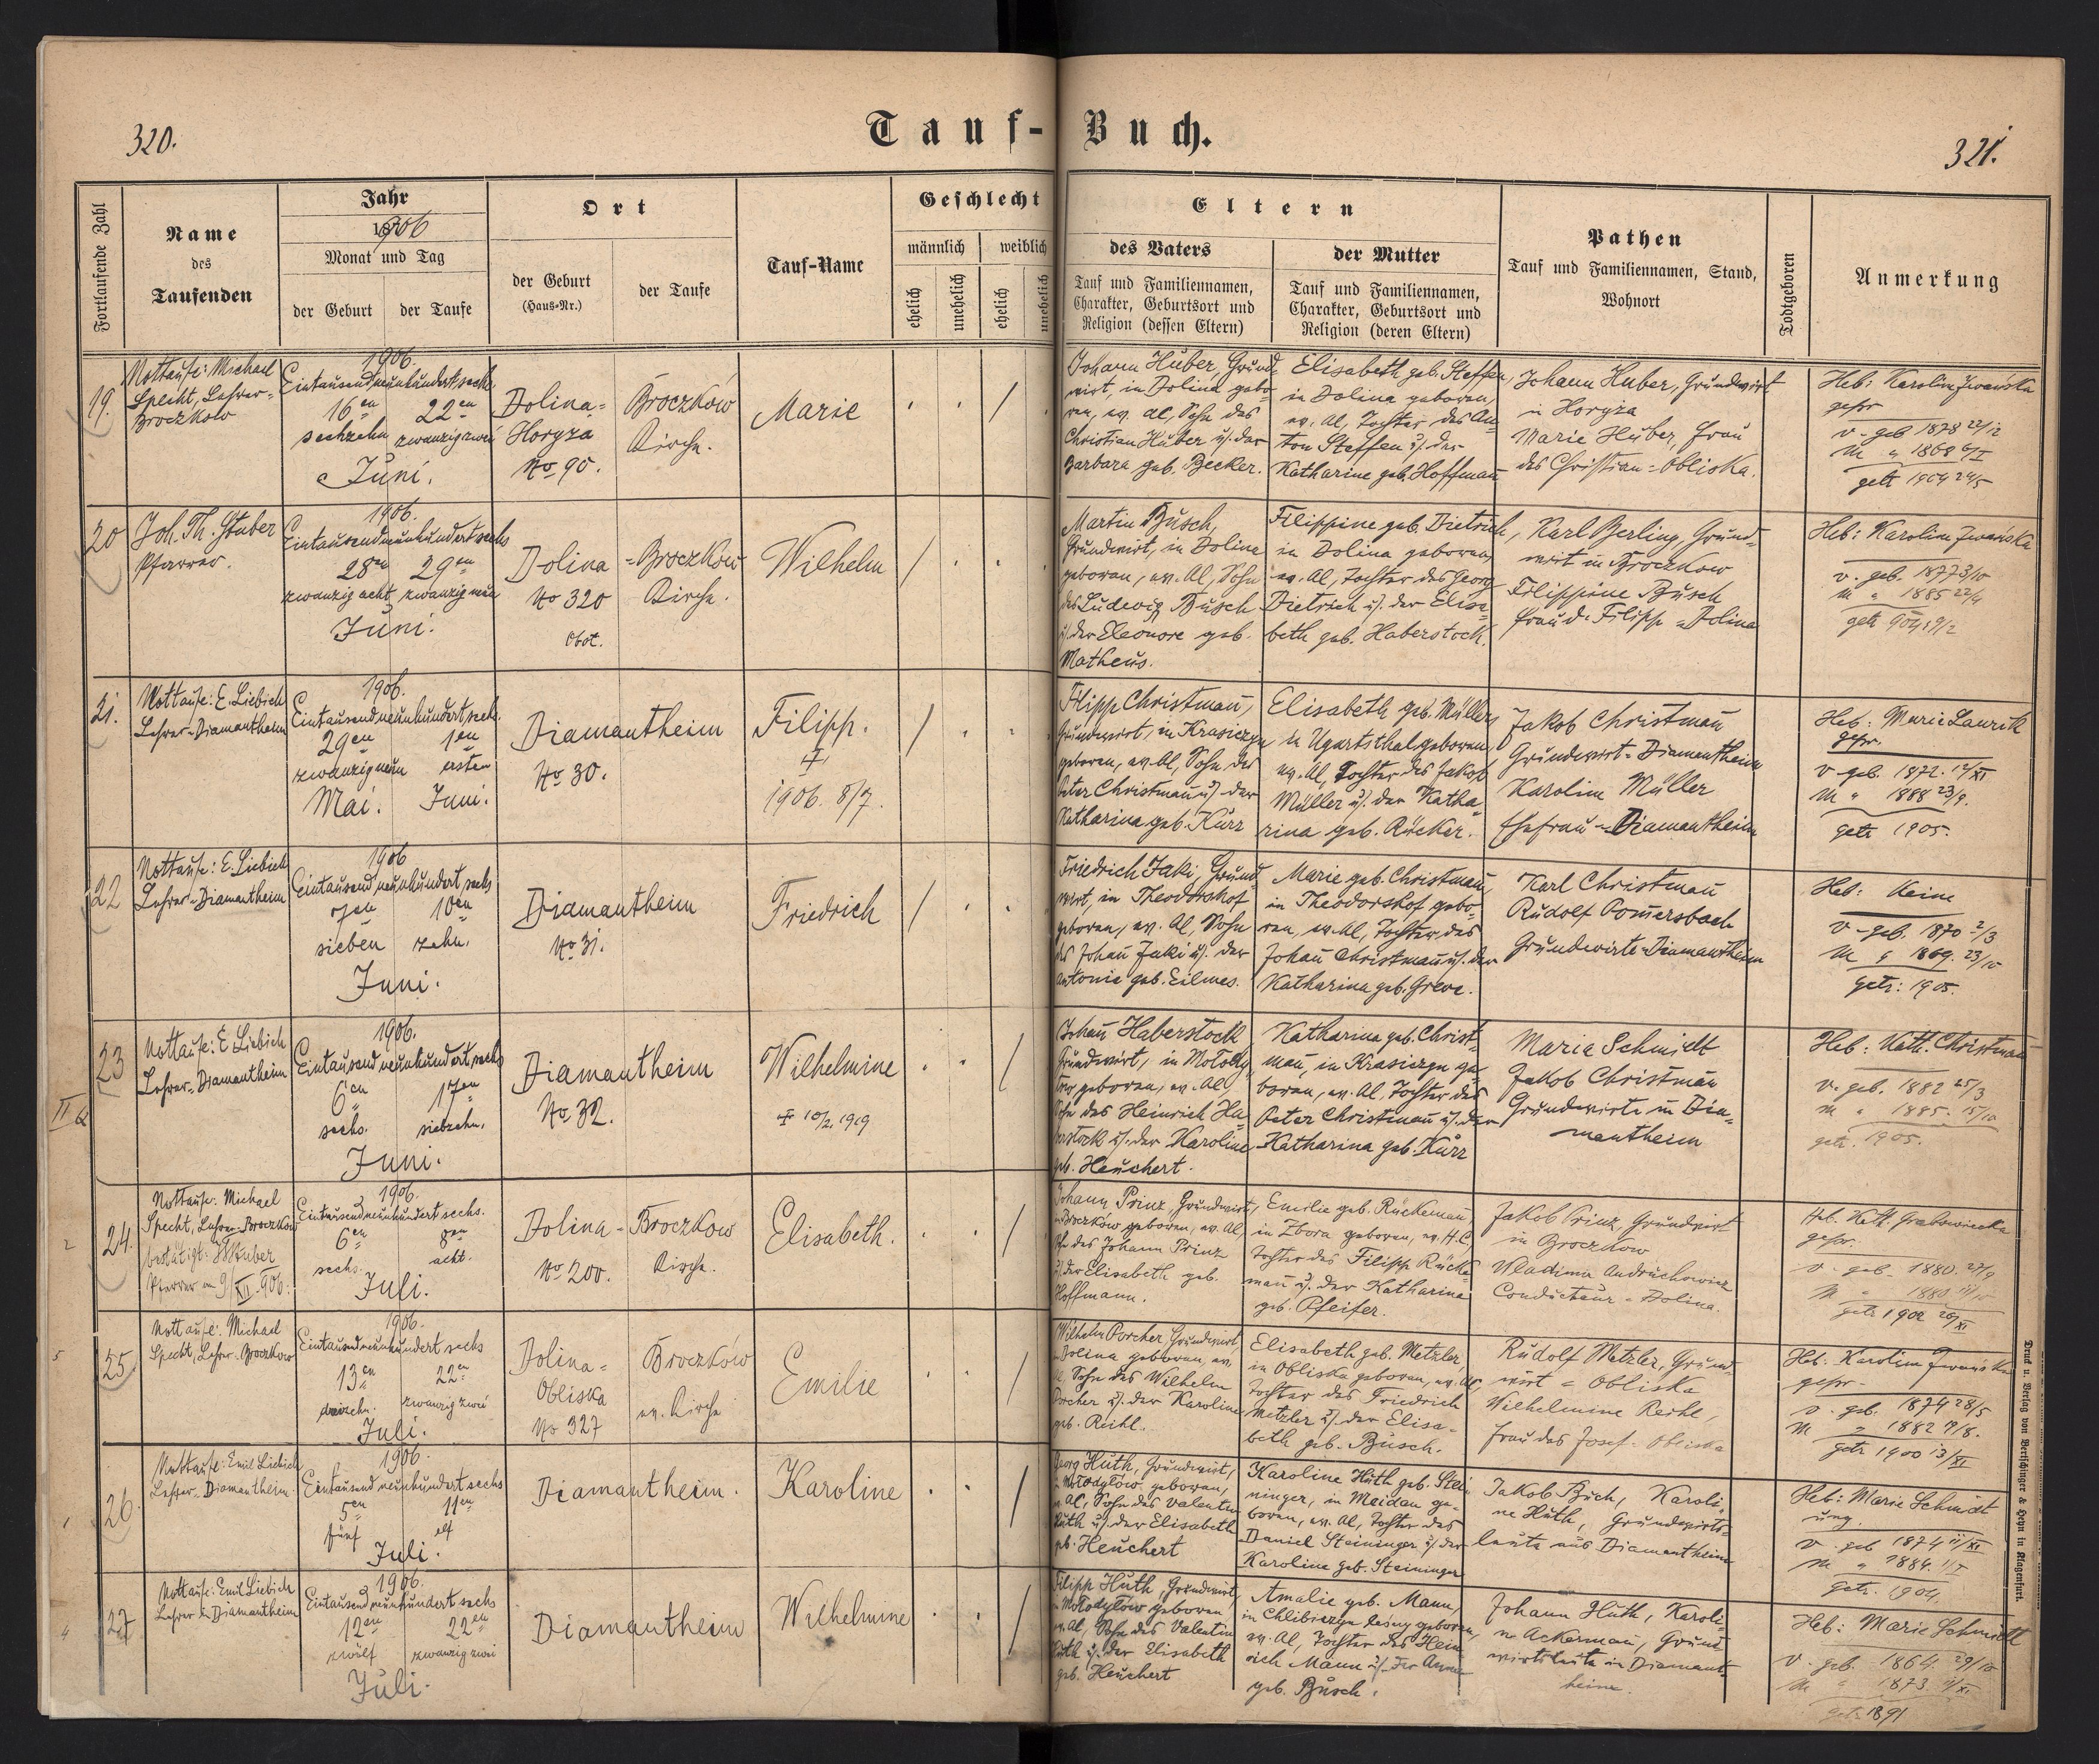 320.
Tauf-Buch.
321.
Fortlaufende Zahl
Name
des
Taufenden
Jahr
1906
Monat und Tag
der Geburt
der Taufe
Ort
der Geburt
(Haus-Nr.)
der Taufe
Tauf-Name
Geschlecht
männlich
weiblich
ehelich
unehelich
ehelich
unehelich
Eltern
des Vaters
Tauf und Familiennamen,
Charakter, Geburtsort und
Religion (dessen Eltern)
der Mutter
Tauf und Familiennamen,
Charakter, Geburtsort und
Religion (deren Eltern)
Pathen
Tauf und Familiennamen, Stand,
Wohnort
Todtgeboren
Anmerkung
19.
Nottaufe: Michael
Specht, Lehrer-
Broczków
1906.
Eintausendneunhundertsechs
16en 22en
sechzehn zwanzigzwei
Juni.
Dolina-
Horyza
No 90.
Broczków
Kirche.
Marie
Johann Huber, Grund-
wirt, in Dolina gebo-
ren, ev. Al, Sohn des
Christian Huber u. der
Barbara geb. Becker.
Elisabeth geb. Steffen,
in Dolina geboren,
ev. Al, Tochter des An-
ton Steffen u. der
Katharine geb. Hoffman
Johann Huber, Grundwirt
in Horyza
Marie Huber, Frau
des Christian - Obliska.
Heb: Karolin Iwańska
gepr
v. geb 1878 22/12
M " 1868 6/I
getr 1904 24/5
20
Joh. Th. Stuber
Pfarrer.
1906.
Eintausendneunhundertsechs
28en 29en
zwanzigacht zwanzigneun
Juni.
Dolina
No 320
Obst.
-Broczków
Kirche.
Wilhelm
Martin Busch,
Grundwirt, in Dolina
geboren, ev. Al, Sohn
des Ludewig Busch
u. der Eleonore geb.
Matheus.
Filippine geb. Dietrich,
in Dolina geboren,
ev. Al, Tochter des Georg
Dietrich u. der Elisa-
beth geb. Haberstock.
Karl Berling, Grund-
wirt in Broczkow
Filippine Busch
Frau d. Filipp - Dolina
Heb: Karolin Iwańska
v. geb. 1877 3/10
M " 1885 22/4
getr 904 9/2
21.
Nottaufe: E. Liebich
Lehrer-Diamantheim
1906.
Eintausendneunhundertsechs.
29en 1en
zwanzigneun ersten
Mai. Juni.
Diamantheim
No 30.
Filipp.
1906. 8/7.
Filipp Christmann,
Grundwirt, in Krasiczyn
geboren, ev. Al, Sohn des
Peter Christmann u. der
Katharina geb. Kurz
Elisabeth geb. Müller,
in Ugartsthal geboren,
ev. Al, Tochter des Jakob
Müller u. der Katha-
rina geb. Rücker.
Jakob Christman
Grundwirt - Diamantheim
Karolin Müller
Ehefrau - Diamantheim
Heb: Marie Laurik
gepr.
v geb. 1872. 12/XI
M " 1888 23/9.
getr 1905.
22
Nottaufe: E. Liebich
Lehrer-Diamantheim
1906
Eintausendneunhundertsechs
7en 10en
sieben zehn.
Juni.
Diamantheim
No 31.
Friedrich
Friedrich Jaki, Grund-
wirt, in Theodorshof
geboren, ev. Al, Sohn
des Johan Jaki u. der
Antonie geb. Eilmes.
Marie geb. Christman,
in Theodorshof gebo-
ren, ev. Al, Tochter des
Johan Christman u. der
Katharina geb. Greve.
Karl Christman
Rudolf Pomersbach
Grundwirte-Diamantheim
Heb: Keine
v - geb. 1870 2/3
M " 1869. 23/10
getr: 1905.
23
Nottaufe: E Liebich
Lehrer-Diamantheim
1906.
Eintausendneunhundertsechs
6en 17en
sechs. siebzehn.
Juni.
Diamantheim
No 32.
Wilhelmine
10/2. 1919
Johan Haberstock
Grundwirt, in Mołody-
łow geboren, ev. Al
Sohn des Heinrich Ha-
berstock u. der Karoline
geb. Heuchert.
Katharina geb. Christ-
man, in Krasiczyn ge-
boren, ev. Al, Tochter des
Peter Christman u. der
Katharina geb. Kurz
Maria Schmidt
Jakob Christman
Grundwirte in Dia-
mantheim
Heb: Kath. Christman
v. geb. 1882 25/3
M " 1885. 15/10
getr. 1905.
24.
Nottaufe: Michael
Specht, Lehrer-Broczków
bestätigt: Stuber
Pfarrer am 9/XII. 906.
1906.
Eintausendneunhundertsechs.
6en 8en
sechs. acht.
Juli.
Dolina-
No 200.
Broczkow
Kirche.
Elisabeth.
Johann Prinz, Grundwirt,
in Broczków geboren, ev. Al,
Sohn des Johann Prinz
u. der Elisabeth geb.
Hoffmann.
Emilie geb. Rückeman,
in Zbora geboren, ev. H.C,
Tochter des Filipp Rücke-
man u. der Katharina
geb. Pfeifer.
Jakob Prinz, Grundwirt
in Broczkow
Wladimir Andruchowicz
Conducteur - Dolina.
Heb. Kath. Grabowiecka
gepr.
v. geb. 1880. 27/9
M " 1880
getr 1902 20/XI
25
Nottaufe: Michael
Specht, Lehrer-Broczkow
1906.
Eintausendneunhundertsechs
13en 22en
dreizehn. zwanzigzwei
Juli.
Dolina-
Obliska
No 327
Broczków
ev. Kirche
Emilie
Wilhelm Porcher, Grundwirt,
in Dolina geboren, ev.
Al, Sohn des Wilhelm
Porcher u. der Karoline
geb. Reihl.
Elisabeth geb. Metzler
in Obliska geboren, ev. Al,
Tochter des Friedrich
Metzler u. der Elisa-
beth geb. Busch.
Rudolf Metzler, Grund-
wirt - Obliska
Wilhelmine Reihl,
Frau des Josef - Obliska
Heb: Karolina Iwańska
gepr-
v. geb. 1874 28/5
M " 1882 7/8.
getr 1900 13/XI
26.
Nottaufe: Emil Liebich
Lehrer-Diamantheim
1906.
Eintausendneunhundertsechs
5en 11en
fünf elf
Juli.
Diamantheim.
Karoline
Georg Huth, Grundwirt,
in Mołodyłow geboren,
ev. Al, Sohn des Valentin
Huth u. der Elisabeth
geb. Heuchert
Karoline Huth geb. Stei-
ninger, in Maidan ge-
boren, ev. Al, Tochter des
Daniel Steininger u. der
Karoline geb. Steininger
Jakob Buch, Karoli-
ne Huth, Grundwirts-
leute aus Diamantheim
Heb: Marie Schmidt
ung.
v. geb 1874 11/XI
M " 1884. 1/I
getr. 1904.
27
Nottaufe: Emil Liebich
Lehrer in Diamantheim
1906.
Eintausendneunhundertsechs
12en 22en
zwölf zwanzigzwei
Juli.
Diamantheim
Wilhelmine
Filipp Huth, Grundwirt,
in Mołodyłow geboren,
ev. Al, Sohn des Valentin
Huth u. der Elisabeth
geb. Heuchert
Amalie geb. Mann,
in Chlibiczyn leśny geboren,
ev. Al, Tochter des Hein-
rich Mann u. der Anna
geb. Busch.
Johann Huth, Karoli-
ne Ackerman, Grund-
wirtsleute in Diamant-
heim.
Heb: Marie Schmidt
v. geb. 1864. 29/10
M " 1873. 11/XI
getr. 1891
Druck u. Verlag von Bertschinger & Heyn in Klagenfurt.